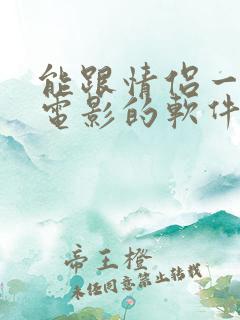 能跟情侶一
電影的軟件
帝王橙
未经同意禁止转载